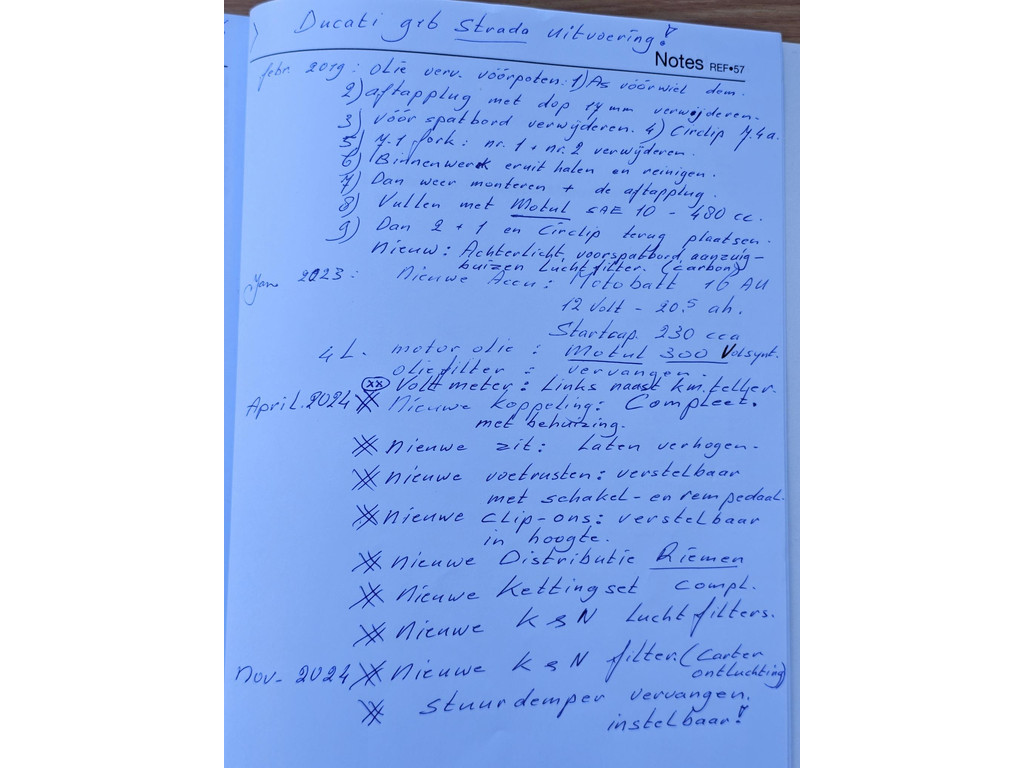 Ducati 916 Strada uitvoering!
Notes REF•57
febr. 2019: Olie verv. vóórpoten: 1) As vóórwiel dem.
2) aftapplug met dop 14 mm verwijderen.
3) vóór spatbord verwijderen. 4) Circlip 7.4a.
5) 7.1 fork: nr. 1 + nr. 2 verwijderen.
6) Binnenwerk eruit halen en reinigen.
7) Dan weer monteren + de aftapplug.
8) Vullen met Motul SAE 10 - 480 cc.
9) Dan 2 + 1 en Circlip terug plaatsen.
Nieuw: Achterlicht, voorspatbord, aanzuig-
buizen Luchtfilter. (carbon)
Jan. 2023: Nieuwe Accu: Motobatt 16 AU
12 Volt - 20.5 ah.
Startcap. 230 cca
4 L. motor olie: Motul 300 Volsynt.
oliefilter = vervangen.
(xx) Volt meter: Links naast km.teller.
April. 2024 Nieuwe Koppeling: Compleet.
met behuizing.
Nieuwe zit: Laten verhogen.
Nieuwe voetrusten: verstelbaar
met schakel- en rempedaal.
Nieuwe clip-ons: verstelbaar
in hoogte.
Nieuwe Distributie Riemen
Nieuwe Kettingset compl.
Nieuwe K&N Luchtfilters.
Nov. 2024 Nieuwe K&N filter. (Carter
ontluchting)
Stuurdemper vervangen.
instelbaar!